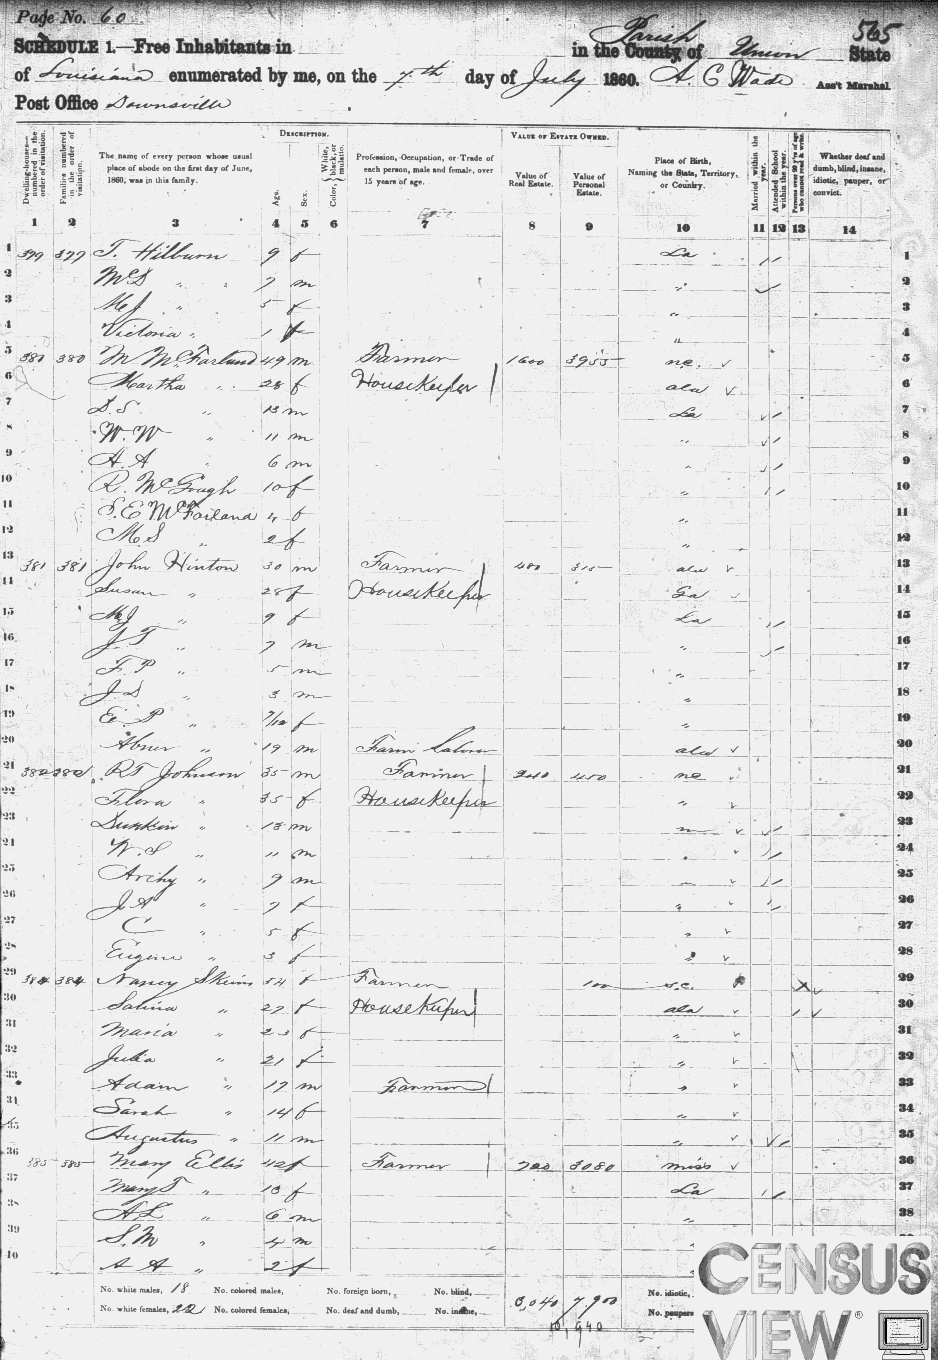 Page No. 60
565
SCHEDULE 1.—Free Inhabitants in in the County of Parish Union State
of Louisiana enumerated by me, on the 7th day of July 1860. A. C Wade Ass't Marshal.
Post Office Downsville
DESCRIPTION. VALUE OF ESTATE OWNED.
Dwelling-houses—numbered in the order of visitation. Families numbered in the order of visitation. The name of every person whose usual place of abode on the first day of June, 1860, was in this family. Age. Sex. Color, White, black, or mulatto. Profession, Occupation, or Trade of each person, male and female, over 15 years of age. Value of Real Estate. Value of Personal Estate. Place of Birth, Naming the State, Territory, or Country. Married within the year. Attended School within the year. Persons over 20 y'rs of age who cannot read & write. Whether deaf and dumb, blind, insane, idiotic, pauper, or convict.
1 2 3 4 5 6 7 8 9 10 11 12 13 14
1 379 377 T. Hilburn 9 f La 1
2 " 7 m " 2
3 M J " 5 f " 3
4 Victoria " 1 f " 4
5 380 380 M McFarland 49 m Farmer 1600 3955 nc 5
6 Martha " 28 f HouseKeeper ala 6
7 D. S. " 13 m La 7
8 W. W " 11 m " 8
9 A. A " 6 m " 9
10 R. McGough 10 f " 10
11 S. E McFarland 4 f " 11
12 M. S " 2 f " 12
13 381 381 John Hinton 30 m Farmer 400 315 ala 13
14 Susan " 28 f HouseKeeper Ga 14
15 M J " 9 f La 15
16 J. T " 7 m " 16
17 F. P " 5 m " 17
18 J. D " 3 m " 18
19 E. P " 7/12 f " 19
20 Abner " 19 m Farm Labor ala 20
21 382 382 RT Johnson 35 m Farmer 240 450 nc 21
22 Flora " 35 f HouseKeeper " 22
23 Dunkin " 13 m " 23
24 W. S " 11 m " 24
25 Archy " 9 m " 25
26 J. A " 7 f " 26
27 C " 5 f " 27
28 Eugene " 3 f " 28
29 384 384 Nancy 54 f Farmer 100 s.c. 29
30 Salina " 27 f HouseKeeper ala 30
31 Maria " 23 f " 31
32 Julia " 21 f " 32
33 Adam " 17 m Farmer " 33
34 Sarah " 14 f " 34
35 Augustus " 11 m " 35
36 385 385 Mary Ellis 42 f Farmer 700 3080 miss 36
37 Mary T " 13 f La 37
38 A L " 6 m " 38
39 S. M " 4 m "
40 A A " 2 f "
No. white males, 18 No. colored males, No. foreign born, No. blind, No. idiotic,
No. white females, 22 No. colored females, No. deaf and dumb, No. insane, No. paupers
3,040 7,900
10,940
CENSUS
VIEW ®